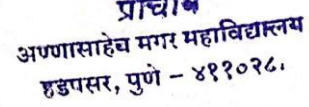 प्राचार्य
अण्णासाहेब मगर महाविद्यालय
हडपसर, पुणे – ४११०२८.